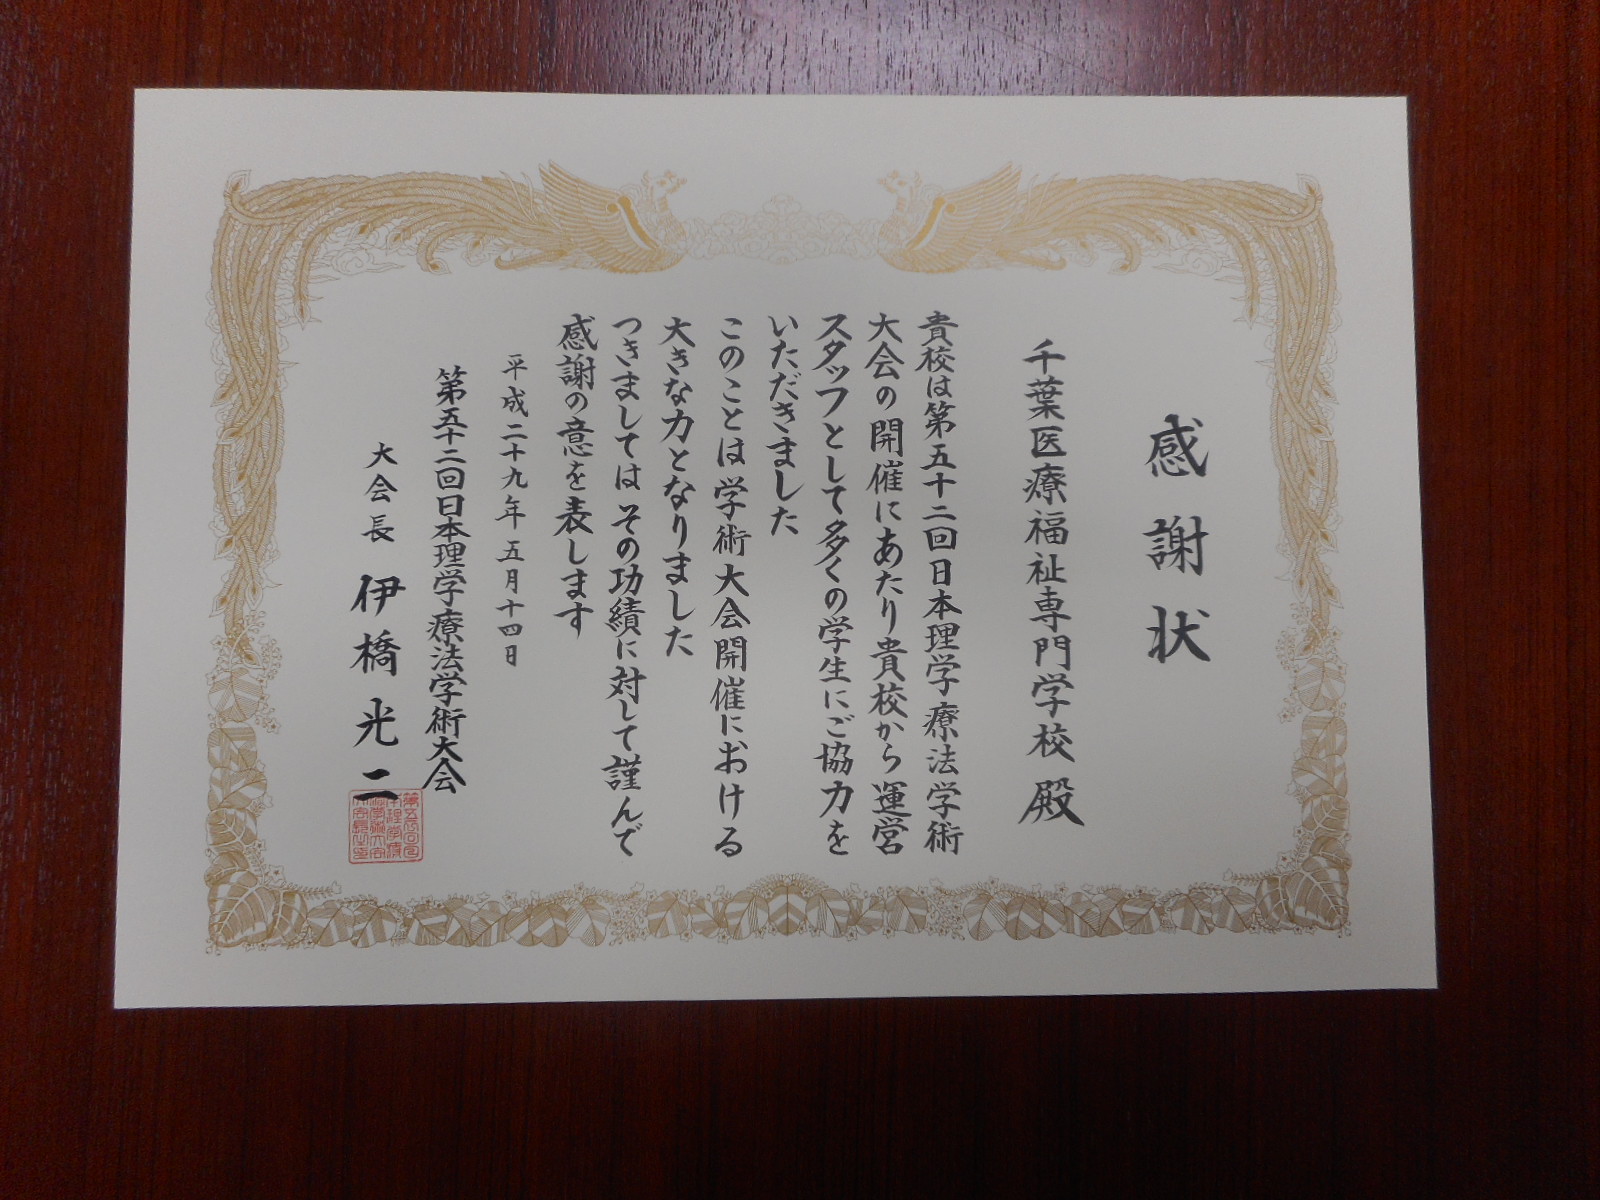 感謝状
千葉医療福祉専門学校殿
貴校は第五十二回日本理学療法学術
大会の開催にあたり貴校から運営
スタッフとして多くの学生にご協力を
いただきました
このことは学術大会開催における
大きな力となりました
つきましてはその功績に対して謹んで
感謝の意を表します
平成二十九年五月十四日
第五十二回日本理学療法学術大会
大会長 伊橋光二